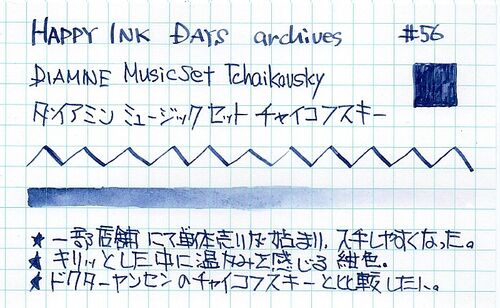 HAPPY INK DAYS archives #56
DIAMINE MusicSet Tchaikovsky
ダイアミン ミュージック セット チャイコフスキー
★ 一部店舗にて単体売りが始まり、入手しやすくなった。
★ キリッとした中に温かみを感じる紺色。
★ ドクターヤンセンのチャイコフスキーと比較したい。